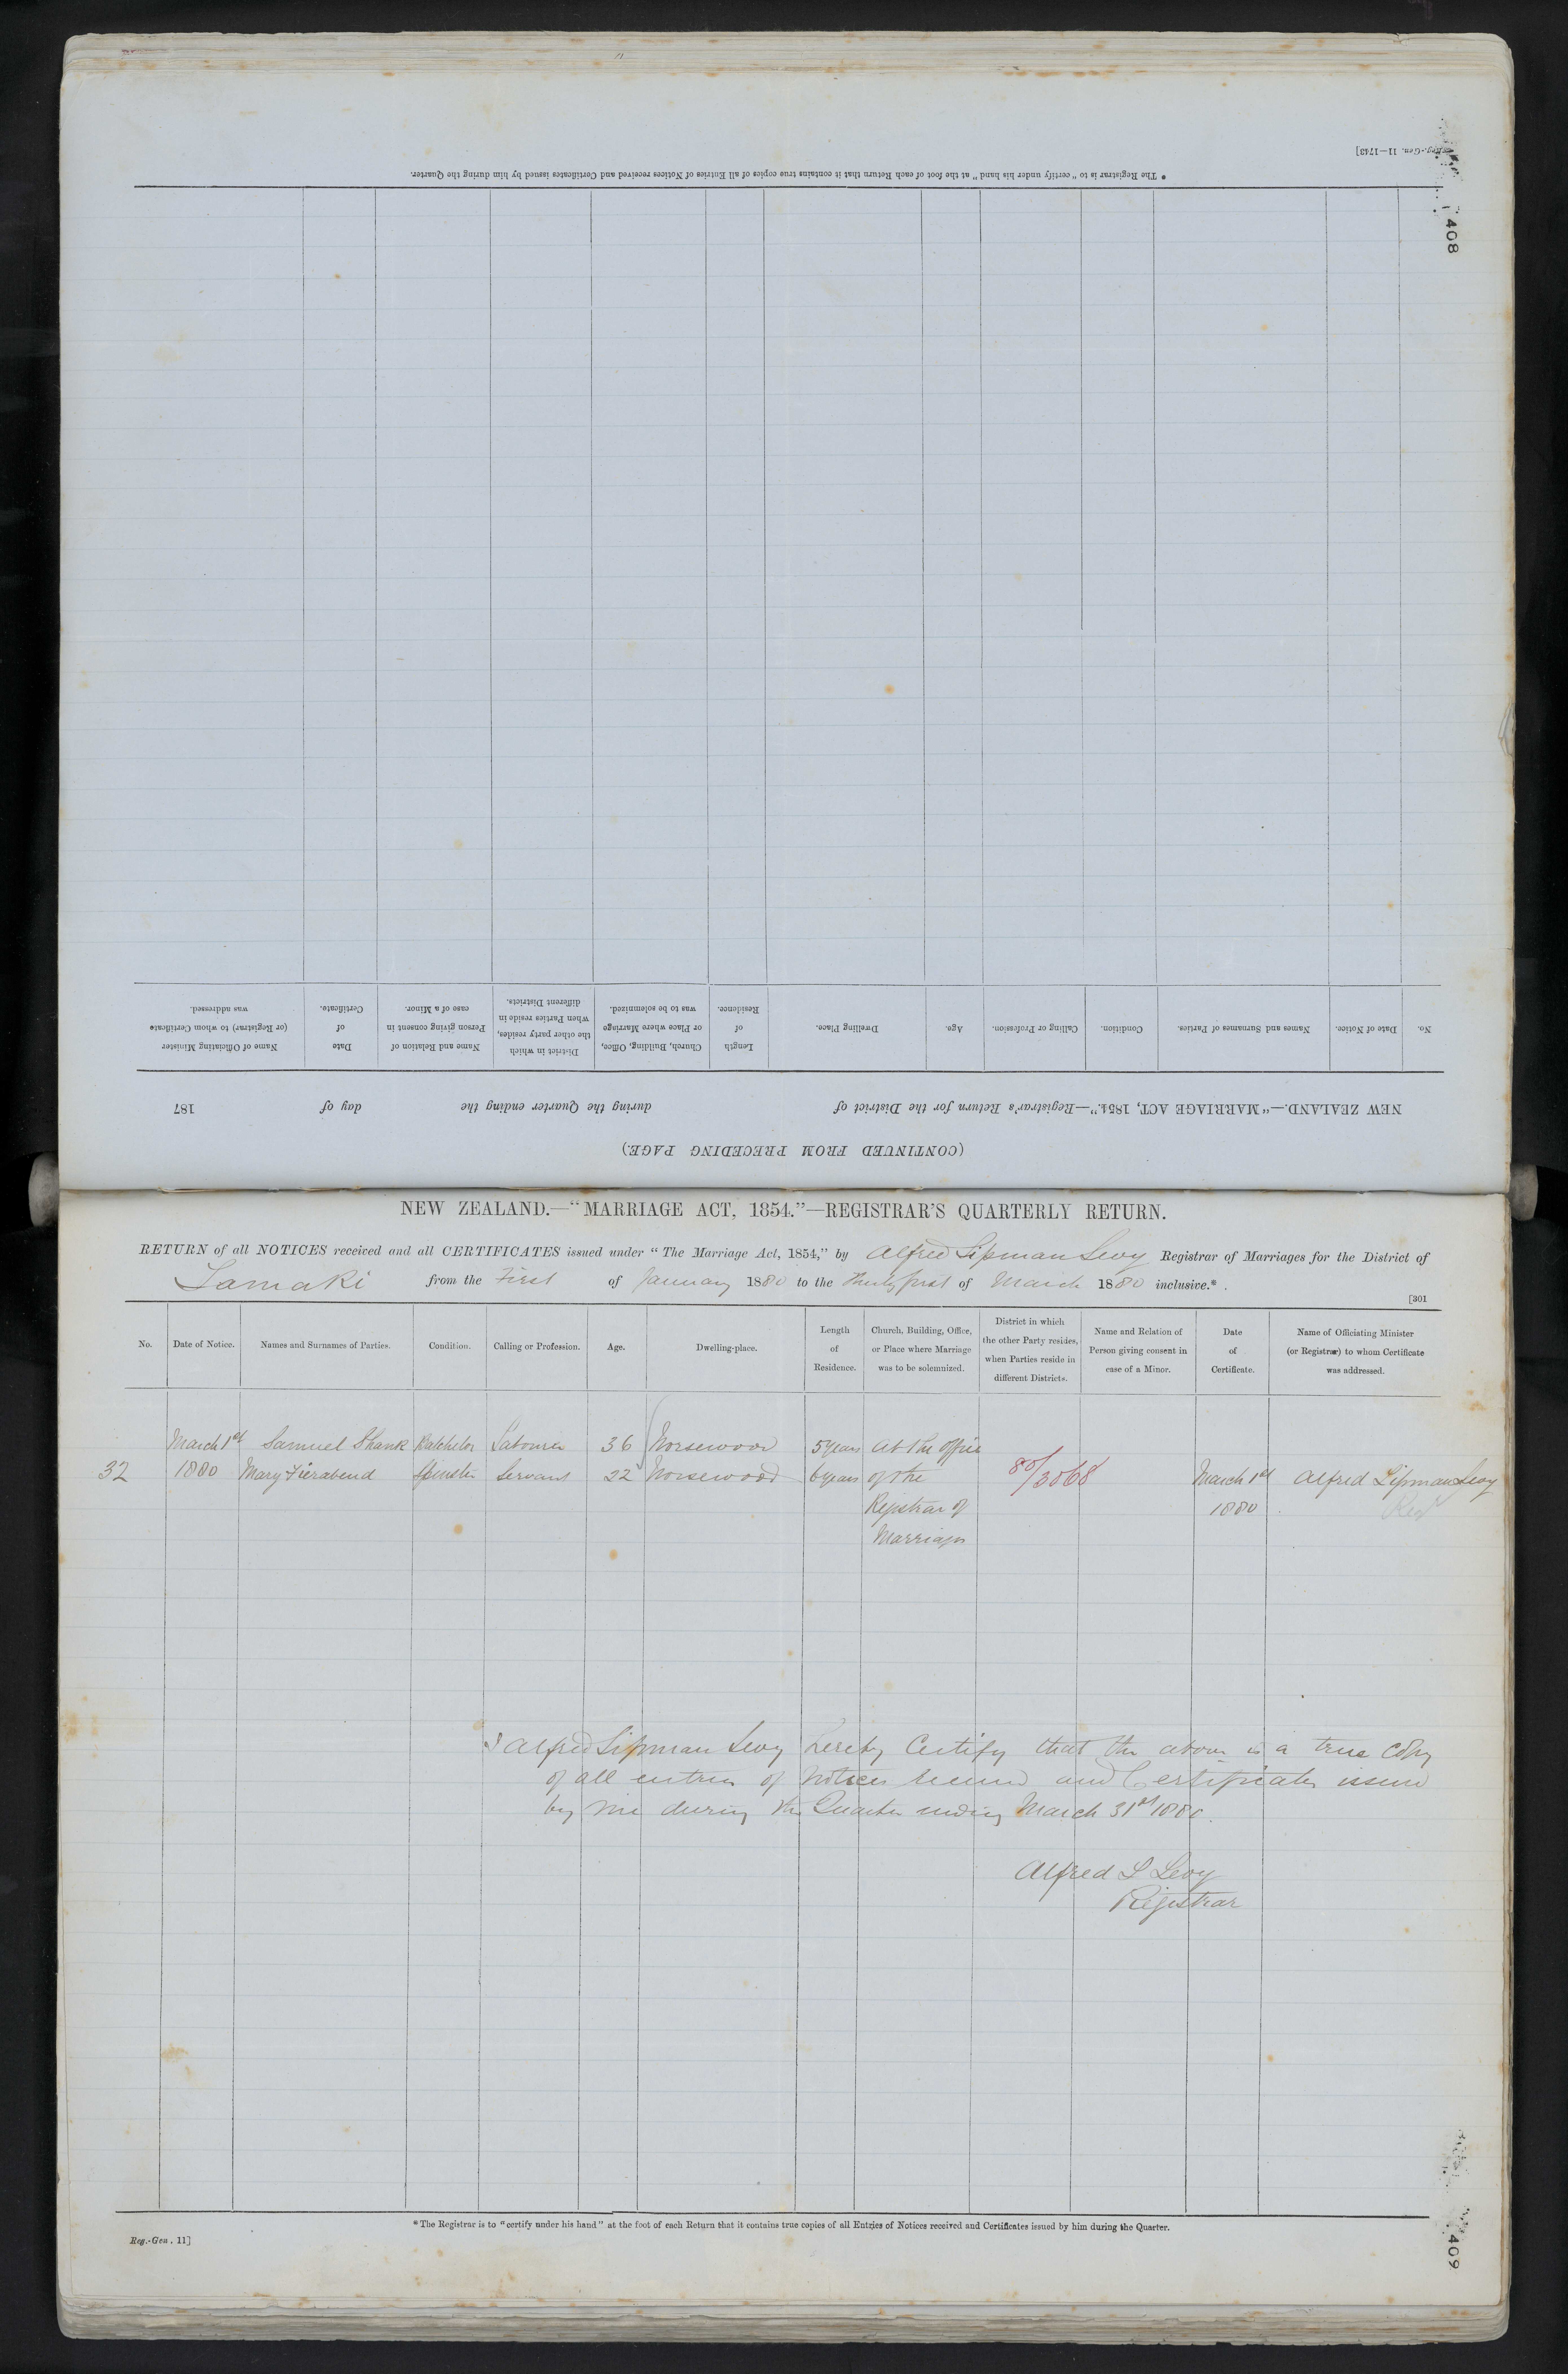 Reg.-Gen. 11—1743]
* The Registrar is to "certify under his hand" at the foot of each Return that it contains true copies of all Entries of Notices received and Certificates issued by him during the Quarter.
408
(CONTINUED FROM PRECEDING PAGE.)
NEW ZEALAND.—"MARRIAGE ACT, 1854."—Registrar's Return for the District of during the Quarter ending the day of 187
No. Date of Notice. Names and Surnames of Parties. Condition. Calling or Profession. Age. Dwelling Place. Length of Residence. Church, Building, Office, or Place where Marriage was to be solemnized. District in which the other party resides, when Parties reside in different Districts. Name and Relation of Person giving consent in case of a Minor. Date of Certificate. Name of Officiating Minister (or Registrar) to whom Certificate was addressed.
NEW ZEALAND.—"MARRIAGE ACT, 1854."—REGISTRAR'S QUARTERLY RETURN.
RETURN of all NOTICES received and all CERTIFICATES issued under "The Marriage Act, 1854," by Alfred Lipman Levy Registrar of Marriages for the District of
Tamaki from the First of January 1880 to the thirty first of March 1880 inclusive.*
[301
No. Date of Notice. Names and Surnames of Parties. Condition. Calling or Profession. Age. Dwelling-place. Length of Residence. Church, Building, Office, or Place where Marriage was to be solemnized. District in which the other Party resides, when Parties reside in different Districts. Name and Relation of Person giving consent in case of a Minor. Date of Certificate. Name of Officiating Minister (or Registrar) to whom Certificate was addressed.
March 1st Samuel Shank Batchelor Labourer 36 Norsewood 5 years At the Office
32 1880 Mary Fierabend Spinster Servant 22 Norsewood 6 years of the 80/3068 March 1st Alfred Lipman Levy
Registrar of 1880 Reg
Marriages
I Alfred Lipman Levy hereby Certify that the above is a true Copy
of all entries of Notices received and Certificates issued
by me during the Quarter ending March 31st 1880.
Alfred L Levy
Registrar
* The Registrar is to "certify under his hand" at the foot of each Return that it contains true copies of all Entries of Notices received and Certificates issued by him during the Quarter.
Reg.-Gen. 11]
409